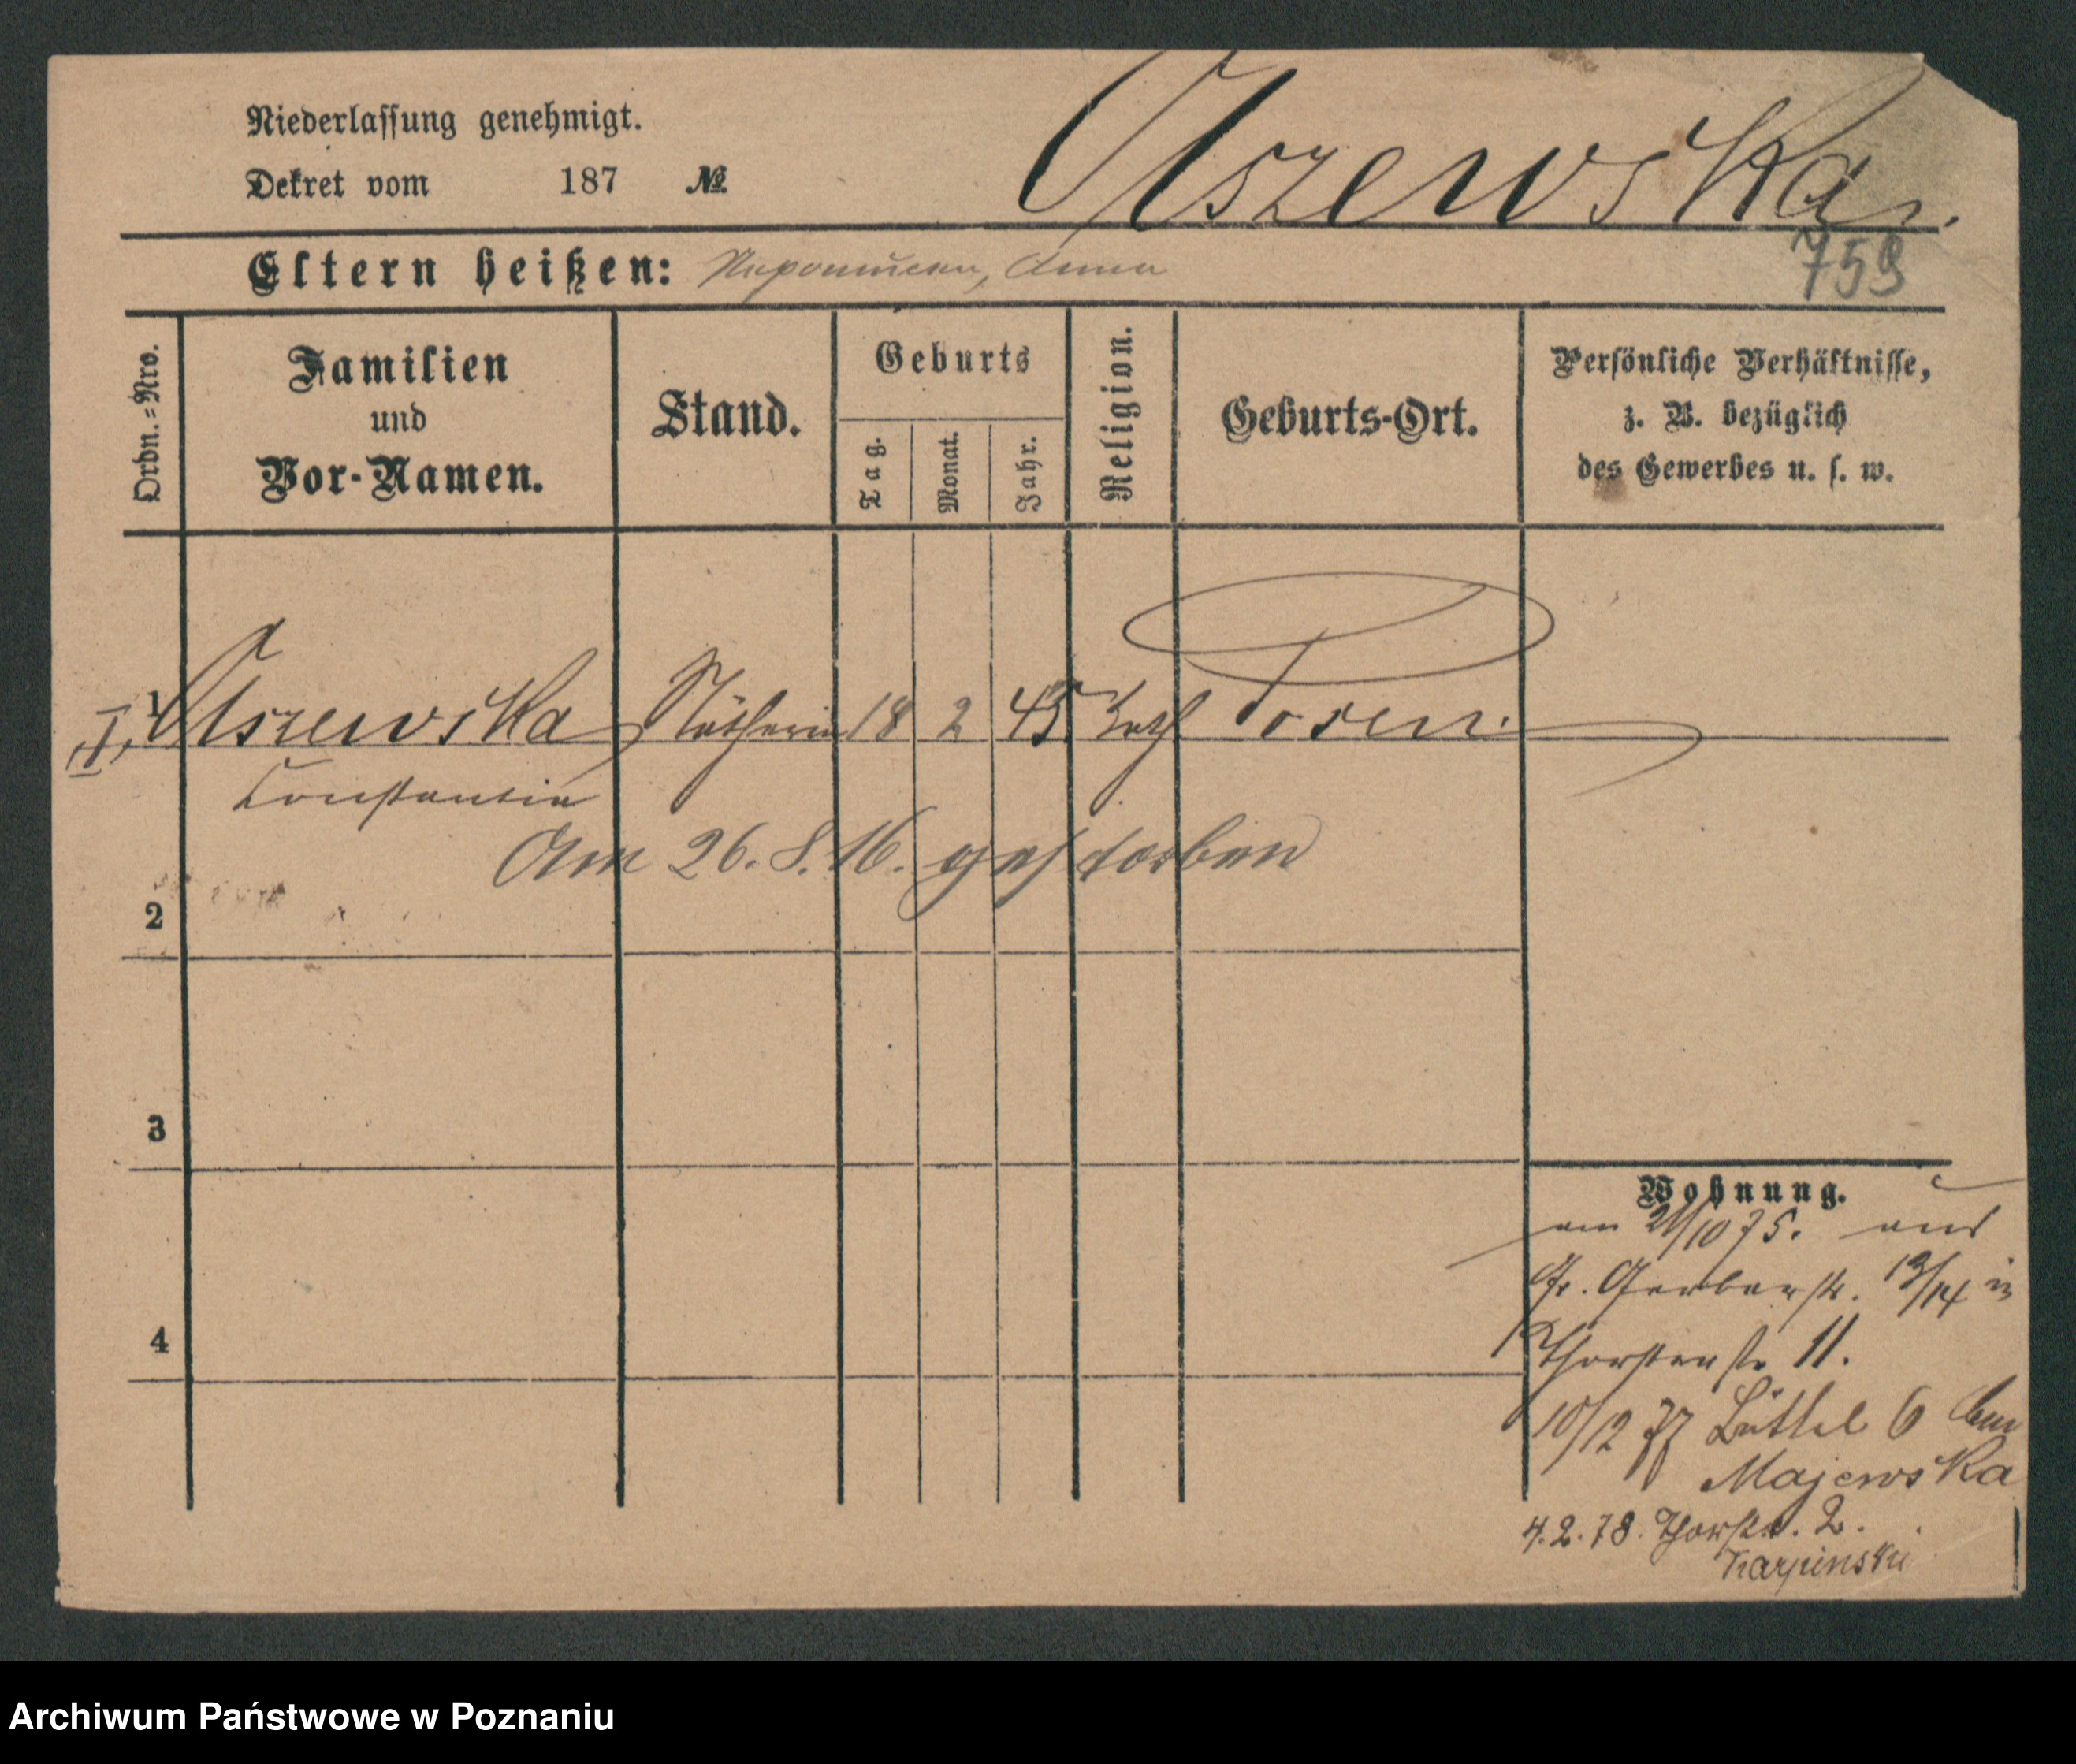 Niederlassung genehmigt.
Olszewska.
Dekret vom 187 №
Eltern heißen: Nepomucen, Anna
759
Ordn.=Nro.
Familien
und
Vor-Namen.
Stand.
Geburts
Tag.
Monat.
Jahr.
Religion.
Geburts-Ort.
Persönliche Verhältnisse,
z. B. bezüglich
des Gewerbes u. s. w.
I. 1 Olszewska Nätherin 18 2 45 Kath Posen.
Constantia
Am 26. 8. 16. gestorben
2
3
4
Wohnung.
am 21/10 75. aus
Gr. Gerberstr. 13/14 in
Thorstenstr 11.
10/12 77 Büttel 6 bei
Majewska
4.2.78. Thorstr. 2.
Karpinski
Archiwum Państwowe w Poznaniu